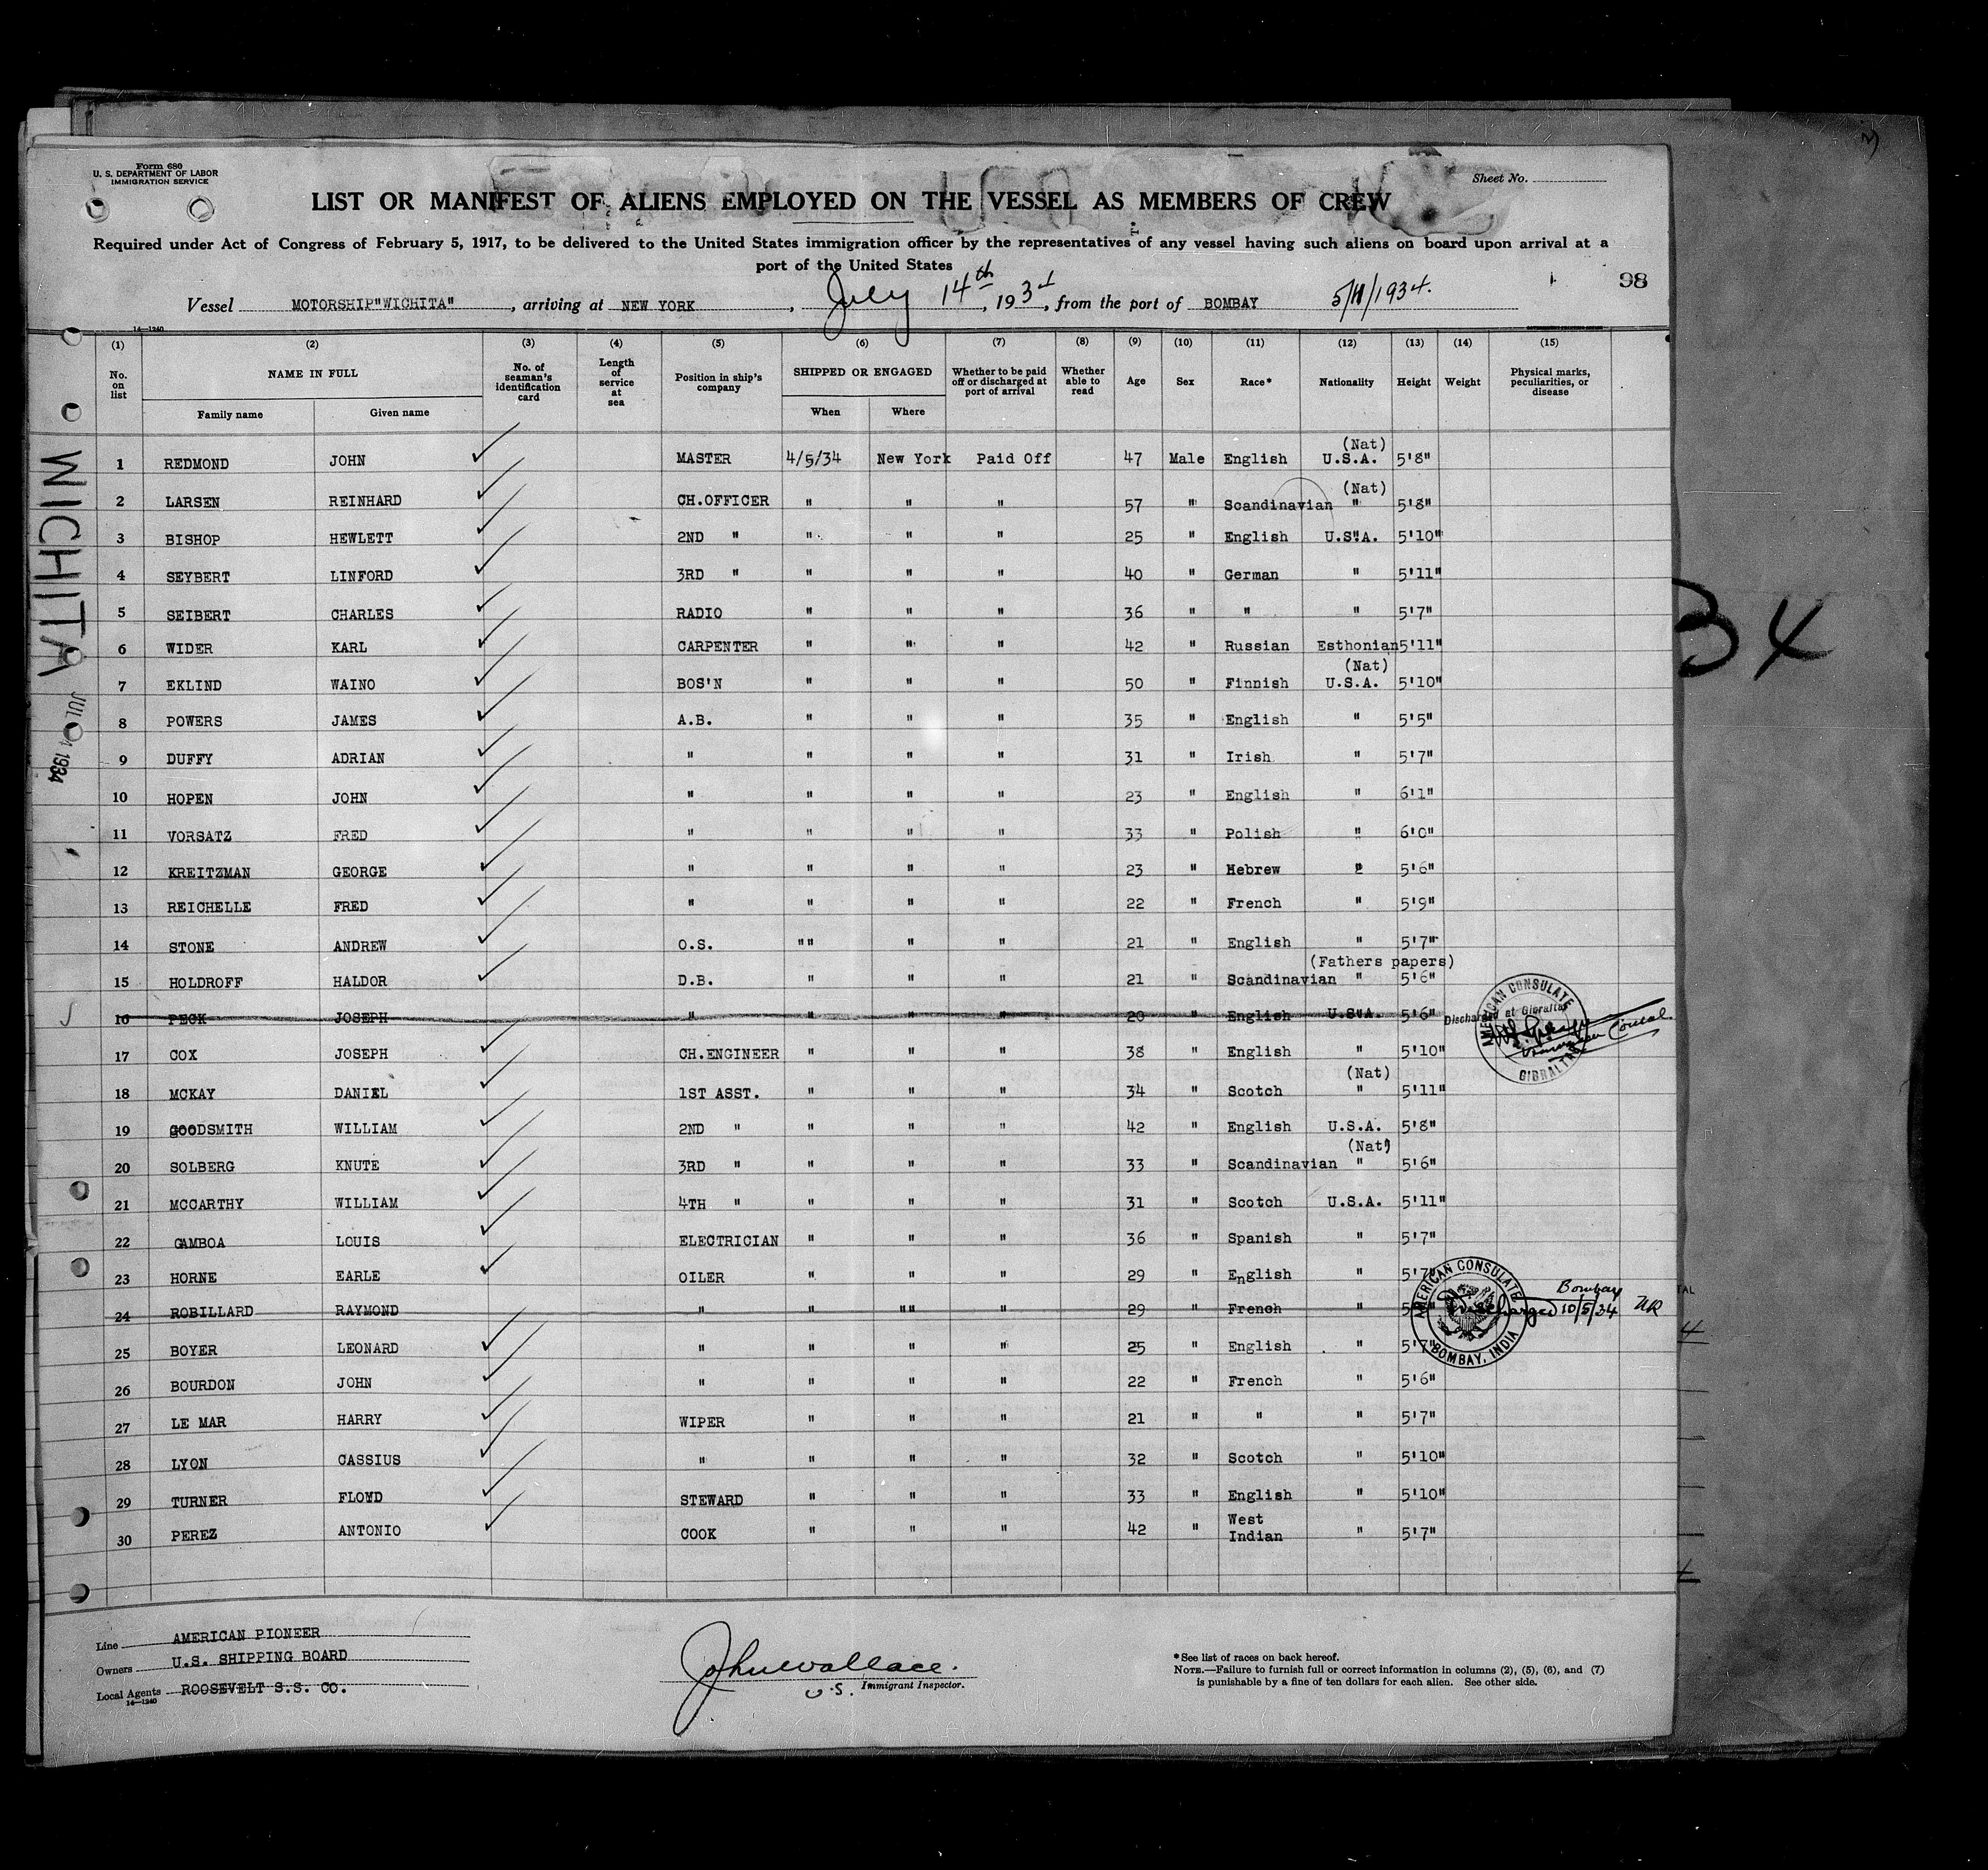 Form 680
U. S. DEPARTMENT OF LABOR
IMMIGRATION SERVICE
Sheet No.
LIST OR MANIFEST OF ALIENS EMPLOYED ON THE VESSEL AS MEMBERS OF CREW
Required under Act of Congress of February 5, 1917, to be delivered to the United States immigration officer by the representatives of any vessel having such aliens on board upon arrival at a
port of the United States
98
Vessel MOTORSHIP"WICHITA", arriving at NEW YORK, July 14th, 1934, from the port of BOMBAY 5/11/1934.
14—1240
(1) (2) (3) (4) (5) (6) (7) (8) (9) (10) (11) (12) (13) (14) (15)
No. on list NAME IN FULL Family name Given name No. of seaman's identification card Length of service at sea Position in ship's company SHIPPED OR ENGAGED When Where Whether to be paid off or discharged at port of arrival Whether able to read Age Sex Race* Nationality Height Weight Physical marks, peculiarities, or disease
(Nat)
1 REDMOND JOHN MASTER 4/5/34 New York Paid Off 47 Male English U.S.A. 5'8"
(Nat)
2 LARSEN REINHARD CH.OFFICER " " " 57 " Scandinavian " 5'8"
3 BISHOP HEWLETT 2ND " " " " 25 " English U.S.A. 5'10"
4 SEYBERT LINFORD 3RD " " " " 40 " German " 5'11"
5 SEIBERT CHARLES RADIO " " " 36 " " " 5'7"
6 WIDER KARL CARPENTER " " " 42 " Russian Esthonian 5'11"
(Nat)
7 EKLIND WAINO BOS'N " " " 50 " Finnish U.S.A. 5'10"
8 POWERS JAMES A.B. " " " 35 " English " 5'5"
9 DUFFY ADRIAN " " " " 31 " Irish " 5'7"
10 HOPEN JOHN " " " " 23 " English " 6'1"
11 VORSATZ FRED " " " " 33 " Polish " 6'0"
12 KREITZMAN GEORGE " " " " 23 " Hebrew " 5'6"
13 REICHELLE FRED " " " " 22 " French " 5'9"
14 STONE ANDREW O.S. "" " " 21 " English " 5'7"
(Fathers papers)
15 HOLDROFF HALDOR D.B. " " " 21 " Scandinavian " 5'6"
16 PECK JOSEPH " " " " 20 " English U.S.A. 5'6" Discharged at Gibraltar
AMERICAN CONSULATE GIBRALTAR
American Consul
17 COX JOSEPH CH.ENGINEER " " " 38 " English " 5'10"
(Nat)
18 MCKAY DANIEL 1ST ASST. " " " 34 " Scotch " 5'11"
19 GOODSMITH WILLIAM 2ND " " " " 42 " English U.S.A. 5'8"
(Nat)
20 SOLBERG KNUTE 3RD " " " " 33 " Scandinavian " 5'6"
21 MCCARTHY WILLIAM 4TH " " " " 31 " Scotch U.S.A. 5'11"
22 GAMBOA LOUIS ELECTRICIAN " " " 36 " Spanish " 5'7"
23 HORNE EARLE OILER " " " 29 " English " 5'7"
24 ROBILLARD RAYMOND " " "" " 29 " French " Discharged Bombay 10/5/34
AMERICAN CONSULATE BOMBAY, INDIA
25 BOYER LEONARD " " " " 25 " English " 5'7"
26 BOURDON JOHN " " " " 22 " French " 5'6"
27 LE MAR HARRY WIPER " " " 21 " " " 5'7"
28 LYON CASSIUS " " " " 32 " Scotch " 5'10"
29 TURNER FLOYD STEWARD " " " 33 " English " 5'10"
30 PEREZ ANTONIO COOK " " " 42 " West Indian " 5'7"
Line AMERICAN PIONEER
Owners U.S. SHIPPING BOARD
Local Agents ROOSEVELT S.S. CO.
14—1240
John Wallace.
U.S. Immigrant Inspector.
*See list of races on back hereof.
NOTE.—Failure to furnish full or correct information in columns (2), (5), (6), and (7)
is punishable by a fine of ten dollars for each alien. See other side.
WICHITA
1934
34